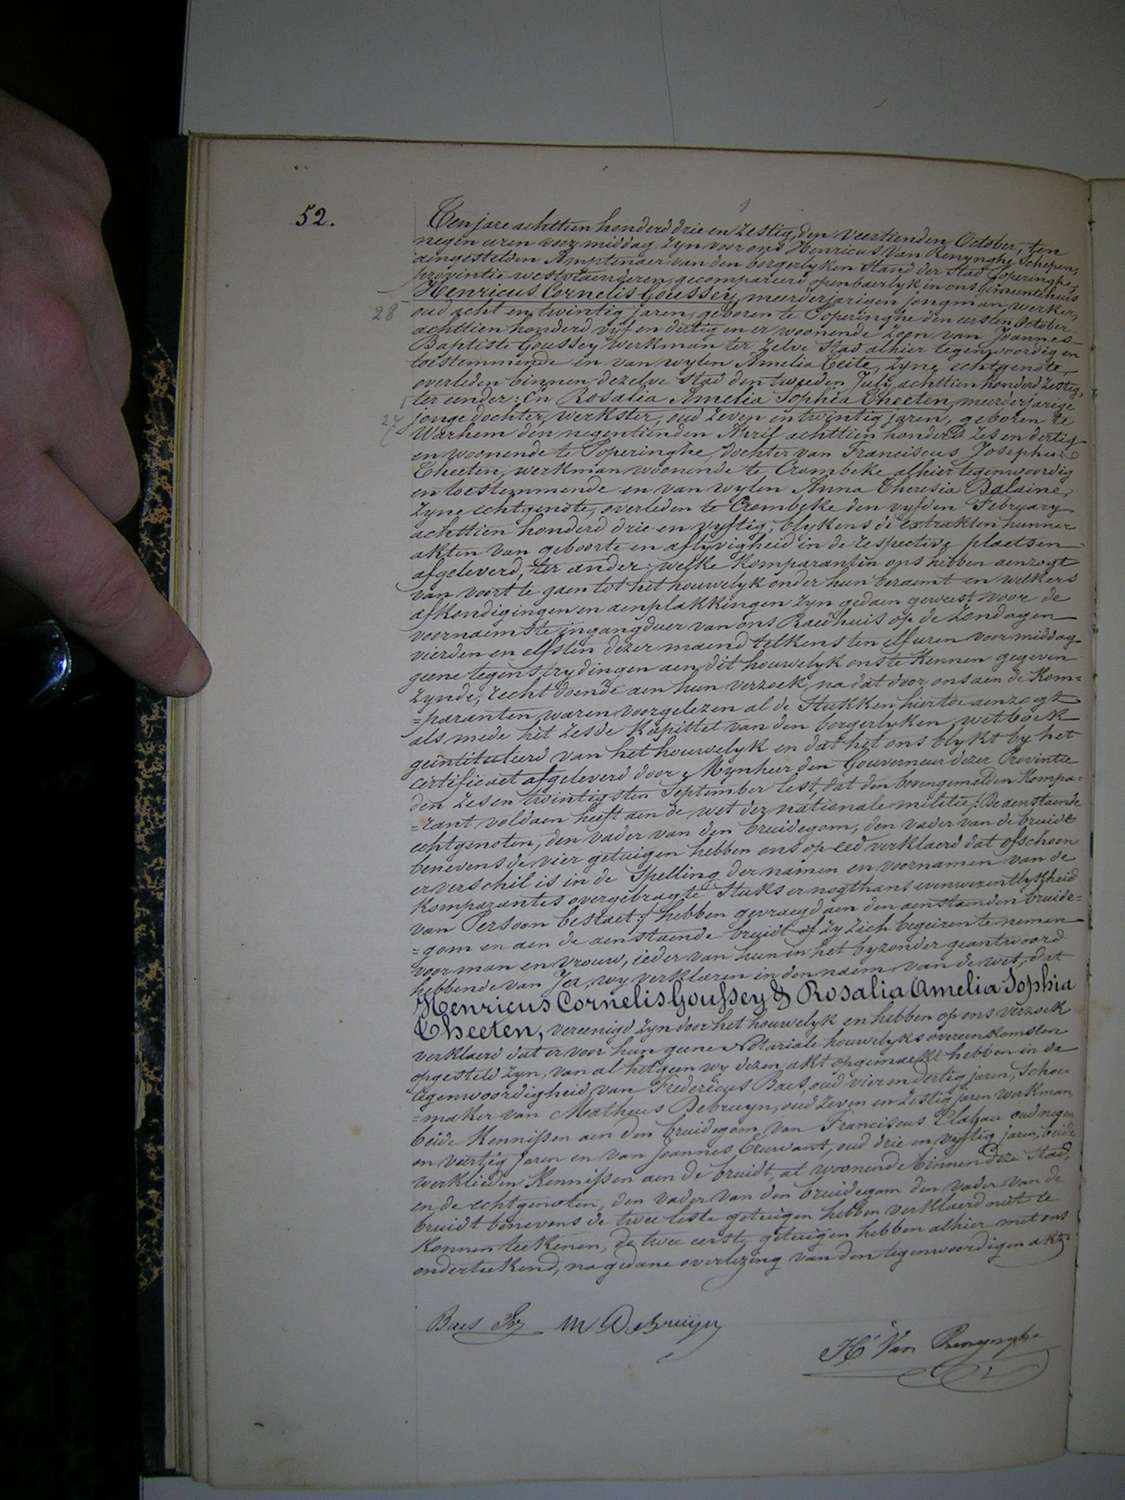 52.
Ten jare achttien honderd drie en zestig, den veertienden October, ten
negen uren voor middag zyn voor ons Henricus Van Renynghe Schepen,
aengestelden Amptenaer van den borgerlyken Stand der Stad Poperinghe,
provintie westvlaenderen, gecompareerd openbaerlyk in ons Gemeentehuis
Henricus Cornelis Goussey, meerderjarigen jongman, werker,
28
oud acht en twintig jaren, geboren te Poperinghe den eersten October
achttien honderd vyf en dertig en er woonende zoon van Joannes
Baptiste Goussey werkman ter zelve Stad alhier tegenwoordig en
toestemmende en van wylen Amelia Ceite, zyne echtgenote,
overleden binnen dezelve Stad den tweeden July achttien honderd zestig,
ter eender; En Rosalia Amelia Sophia Theeten, meerderjarige
27
jonge dochter, werkster, oud zeven en twintig jaren, geboren te
Warhem den negentienden April achttien honderd zes en dertig
en woonende te Poperinghe, dochter van Franciscus Josephus
Theeten, werkman woonende te Crombeke alhier tegenwoordig
en toestemmende en van wylen Anna Theresia Dalaine,
zyne echtgenote, overleden te Crombeke den vyfden February
achttien honderd drie en vyftig, blykens de extrakten hunner
akten van geboorte en aflyvigheid in de respective plaetsen
afgeleverd, ter ander; welke komparanten ons hebben aenzogt
van voort te gaen tot het houwelyk onder hun beraemt en welkers
afkondigingen en aenplakkingen zyn gedaen geweest voor de
voornaemste ingangduer van ons Raedhuis op de zondagen
vierden en elfsten dezer maend telkens ten elf uren voor middag
geene tegenstrydingen aen dit houwelyk ons te kennen gegeven
zynde; recht doende aen hun verzoek, na dat door ons aen de Kom=
=paranten waren voorgelezen al de Stukken hiertoe aenzogt
als mede het zesde Kapittel van den borgerlyken wetboek
geintituleerd van het houwelyk en dat het ons blykt by het
certificaet afgeleverd door Mynheer den Gouverneur dezer Provintie
den zes en twintigsten September lest, dat den bovengemelden Kompa=
=rant voldaen heeft aen de wet der nationale militie; De aenstaende
echtgenoten, den vader van den bruidegom, den vader van de bruidt
benevens de vier getuigen hebben ons op eed verklaerd dat ofschoon
er verschil is in de Spelling der namen en voornamen van de
komparantes overgebragte Stuks er nogthans evenwezentlykheid
van Persoon bestaet; hebben gevraegd aen den aenstaenden bruide=
=gom en aen de aenstaende bruidt of zy zich begeiren te nemen
voor man en vrouw, ieder van hun en het byzonder geantwoord
hebbende van Ja, wy verklaren in den naem van de wet, dat
Henricus Cornelis Goussey & Rosalia Amelia Sophia
Theeten, vereenigd zyn door het houwelyk en hebben op ons verzoek
verklaerd dat er voor hun geene Notariale houwelyks overeenkomsten
opgesteld zyn, van al hetgeen wy dezen akt opgemaekt hebben in de
tegenwoordigheid van Fredericus Baes, oud vier en dertig jaren, Schoen
=maker van Matheus Debruyn, oud zeven en zestig jaren werkman
beide Kennissen aen den bruidegom, van Franciscus oud negen
en veertig jaren en van Joannes oud drie en vyftig jaren, beide
werklieden Kennissen aen de bruidt, al woonende binnen deze Stad,
en de echtgenoten, den vader van den bruidegom den vader van de
bruidt benevens de twee leste getuigen hebben verklaerd niet te
konnen teekenen, de twee eerste getuigen hebben alhier met ons
onderteekend, na gedane overlezing van den tegenwoordigen akt.
Baes Fr M Debruijn
H. Van Renynghe